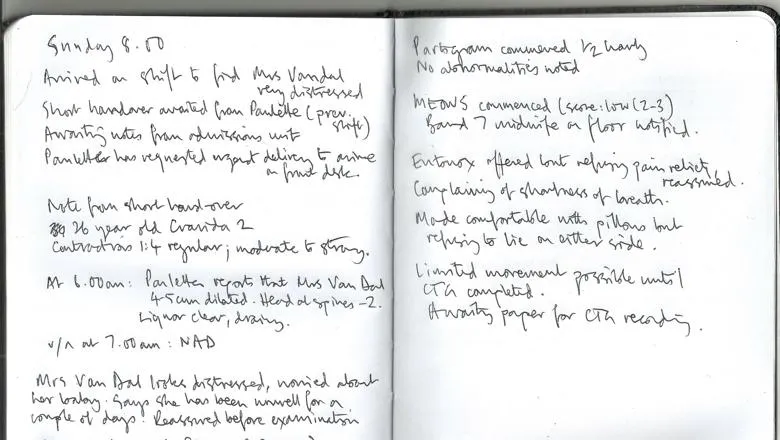 Sunday 8.00
Arrived on shift to find Mrs Vandal
very distressed
Short handover awaited from Paulette (prev.
shift)
Awaiting notes from admissions unit
Paulette has requested urgent delivery to arrive
on front desk.
Note from short hand-over
36 year old Gravida 2
Contractions 1:4 regular; moderate to strong.
At 6.00am: Paulette reports that Mrs Van Dal
4-5cm dilated. Head at spines -2.
Liquor clear, draining.
v/n at 7.00am: NAD
Mrs Van Dal looks distressed, worried about
her baby. Says she has been unwell for a
couple of days. Reassured before examination
Partogram commenced 1/2 hourly
No abnormalities noted
MEOWS commenced (score: low (2-3)
Band 7 midwife on floor notified.
Entonox offered but refusing pain relief,
reassured.
Complaining of shortness of breath.
Made comfortable with pillows but
refusing to lie on either side.
Limited movement possible until
CTG completed.
Awaits paper for CTG recording.